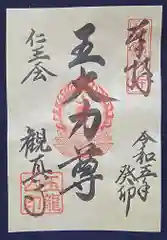 奉拝
令和五年
癸卯
五大力尊
仁王会
観真